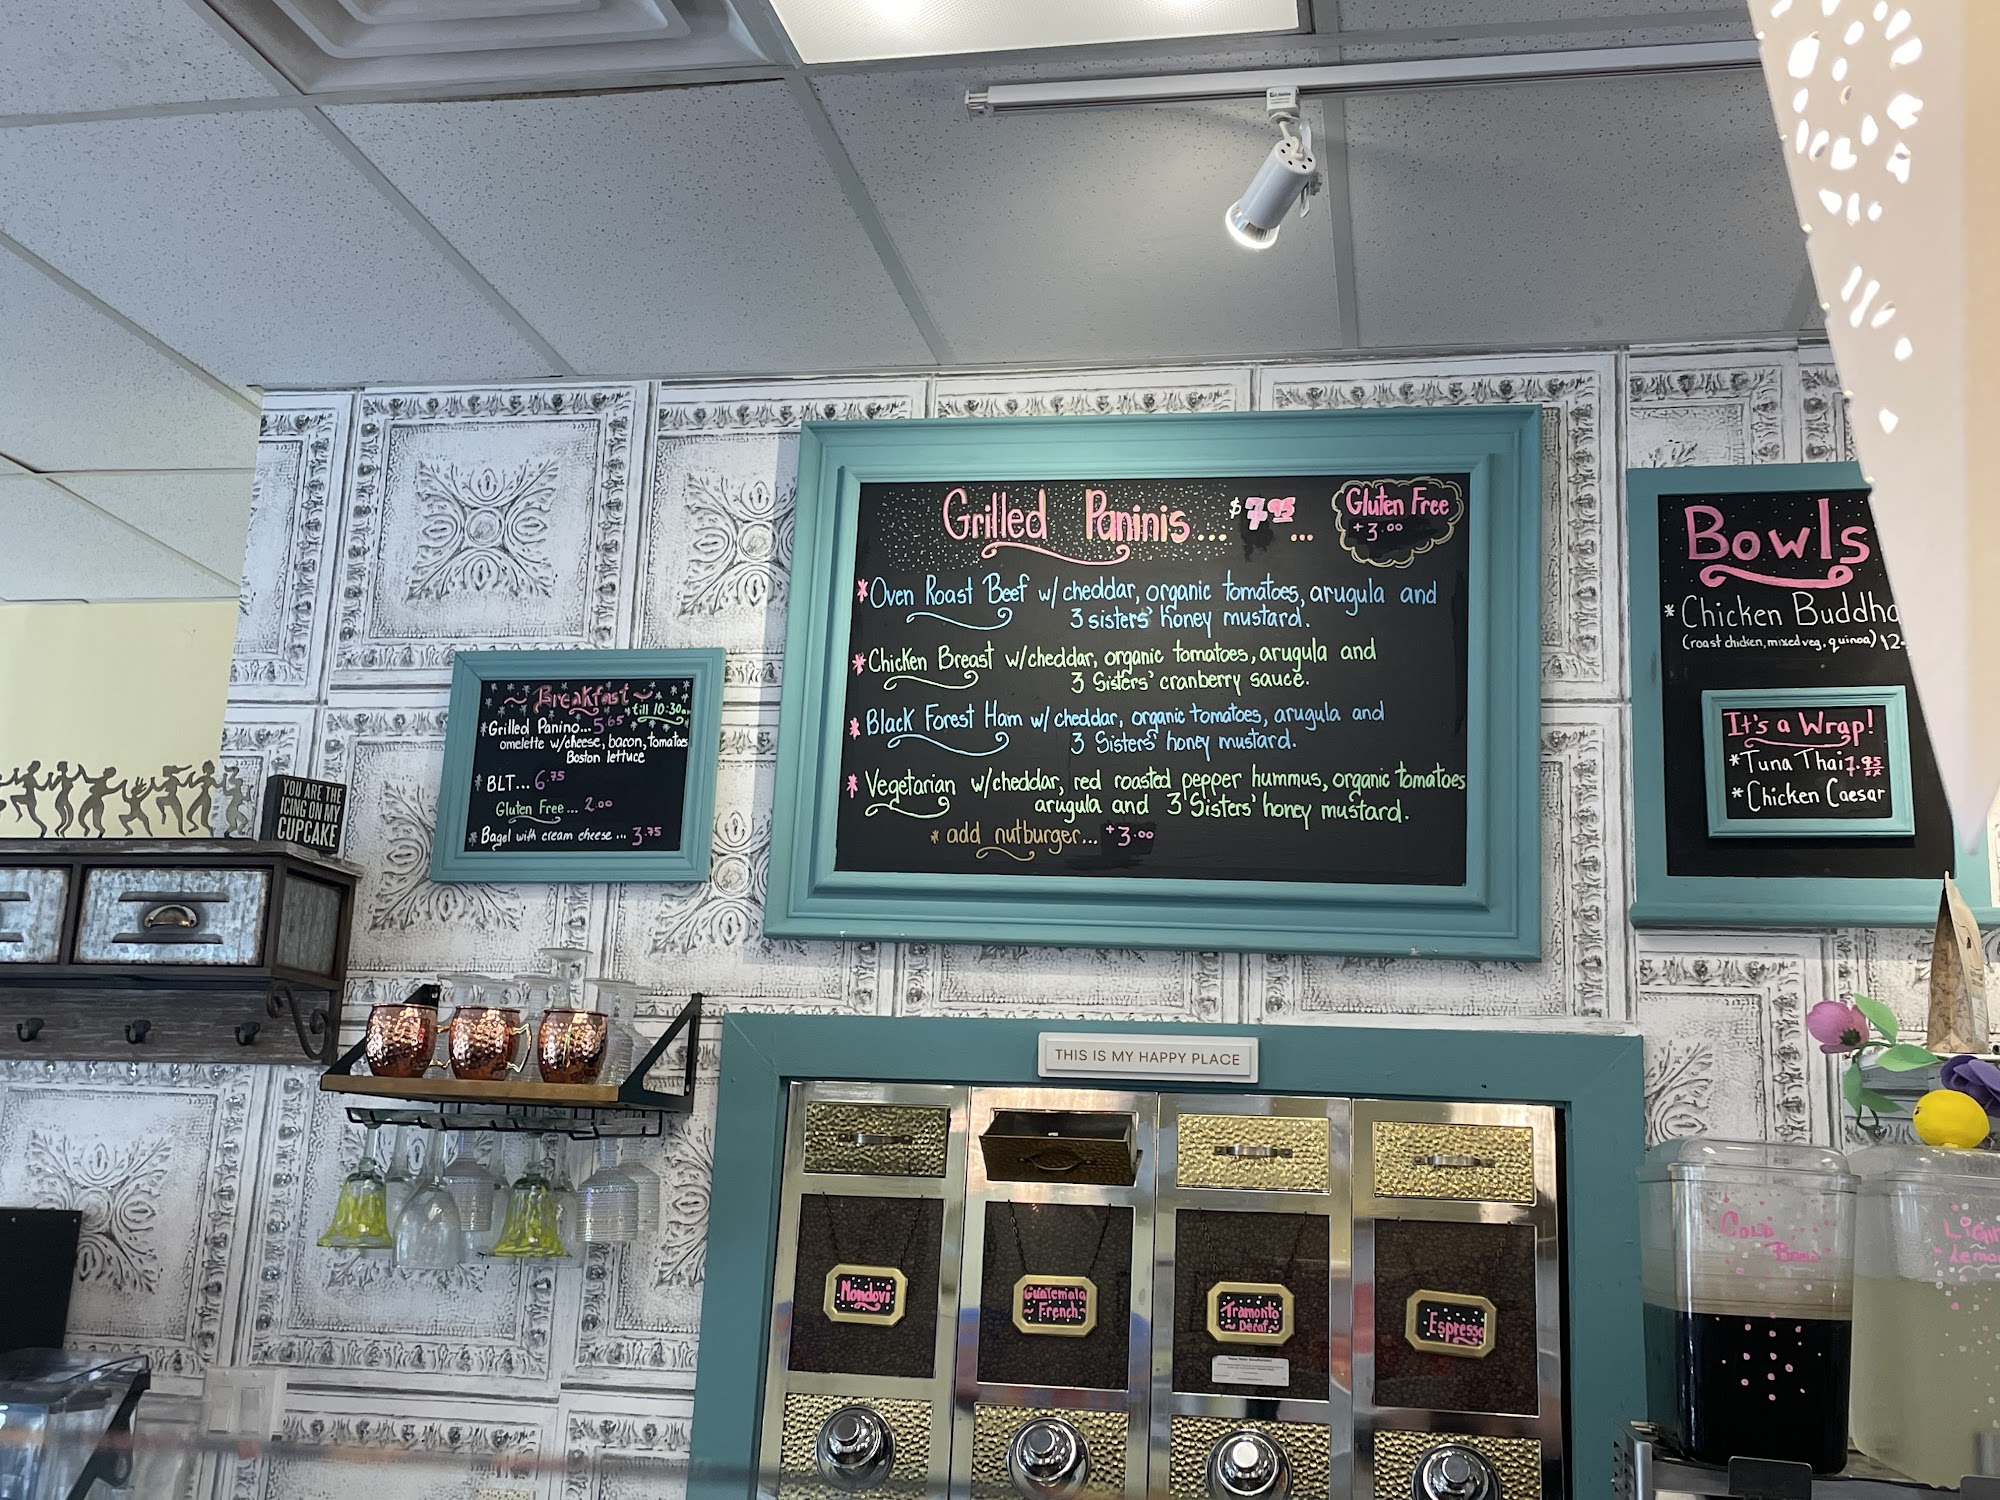 Breakfast
till 10:30am
*Grilled Panino...5.65
omelette w/cheese, bacon, tomatoes
Boston lettuce
*BLT...6.75
Gluten Free...2.00
*Bagel with cream cheese...3.75
YOU ARE THE
ICING ON MY
CUPCAKE
Grilled Paninis...$7.95...
Gluten Free
+3.00
*Oven Roast Beef w/ cheddar, organic tomatoes, arugula and
3 sisters' honey mustard.
*Chicken Breast w/cheddar, organic tomatoes, arugula and
3 Sisters' cranberry sauce.
*Black Forest Ham w/ cheddar, organic tomatoes, arugula and
3 Sisters' honey mustard.
*Vegetarian w/cheddar, red roasted pepper hummus, organic tomatoes
arugula and 3 Sisters' honey mustard.
*add nutburger...+3.00
Bowls
*Chicken Buddha
(roast chicken, mixed veg, quinoa) 12.
It's a Wrap!
*Tuna Thai 7.95
*Chicken Caesar
THIS IS MY HAPPY PLACE
Mondovi
Guatemala
~French~
Tramonto
~Decaf~
Espresso
Cold
Brew